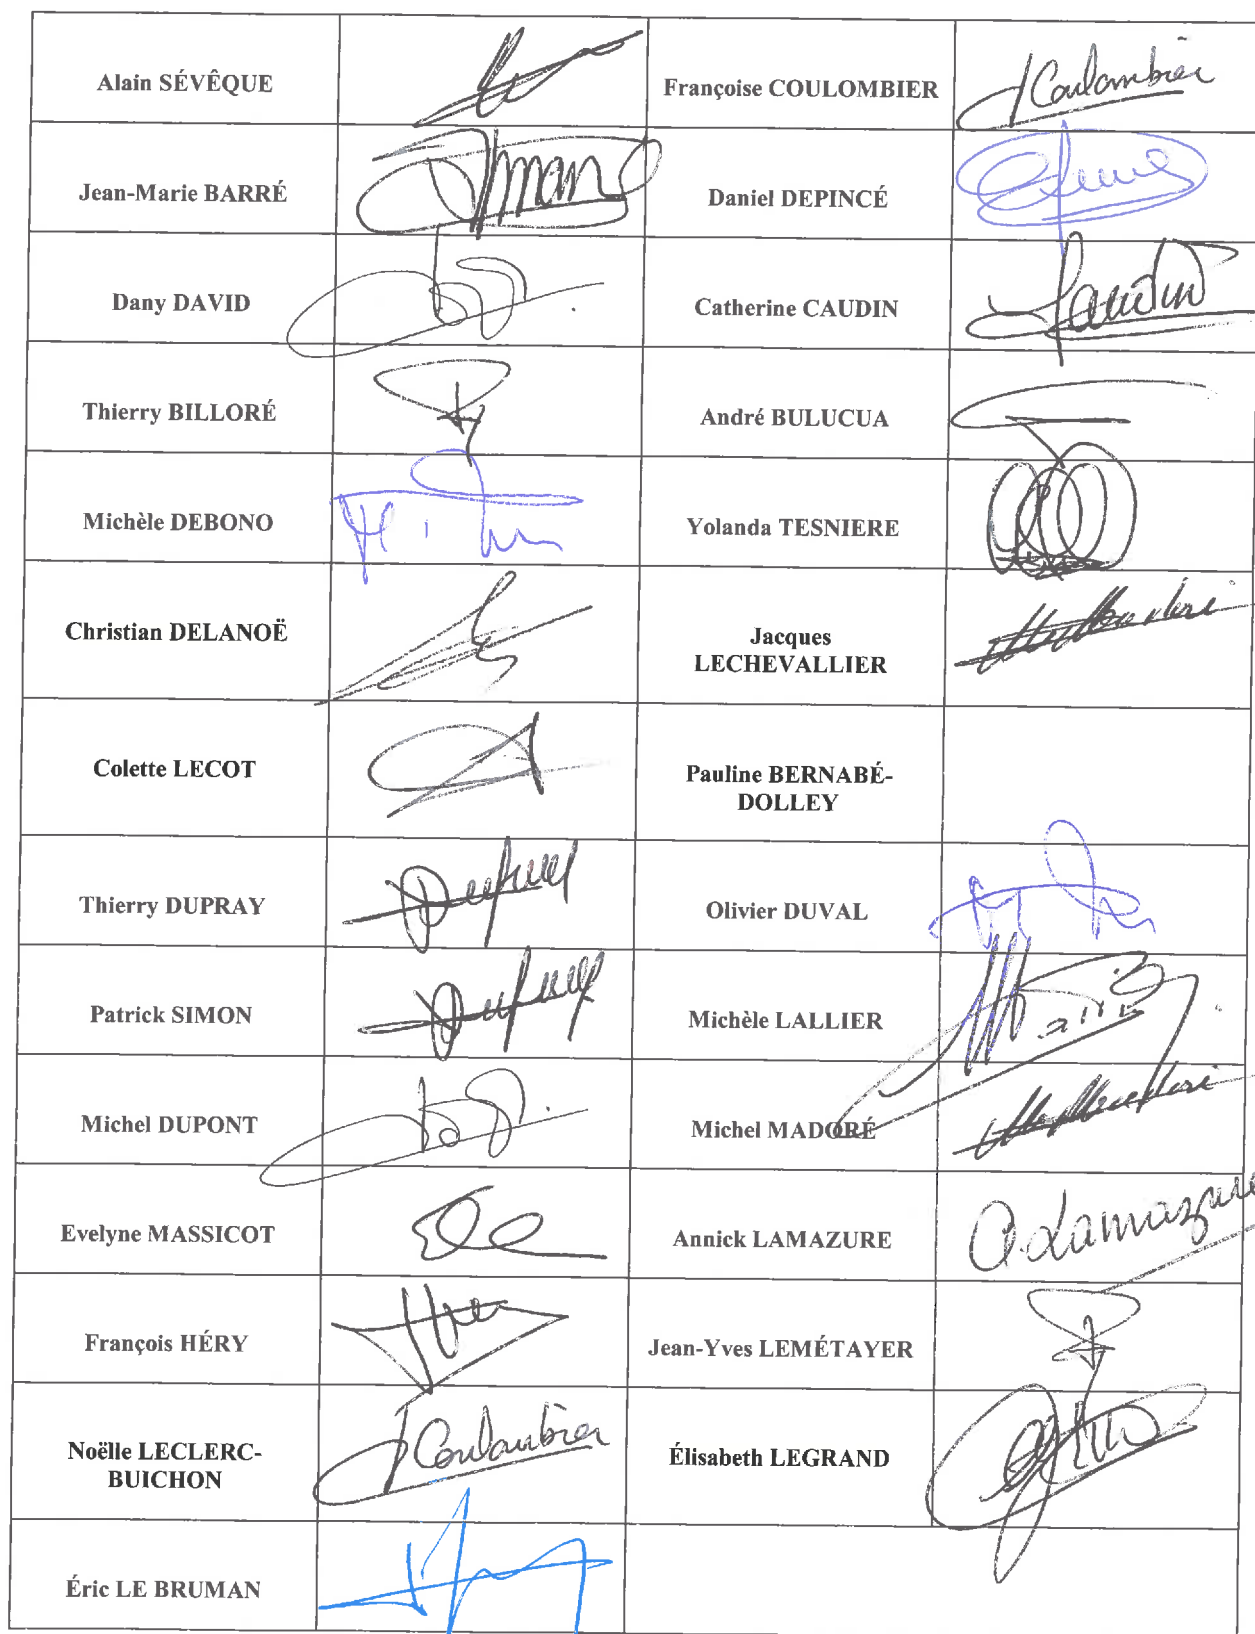 Alain SÉVÊQUE
Françoise COULOMBIER
Coulombier
Jean-Marie BARRÉ
Daniel DEPINCÉ
Dany DAVID
Catherine CAUDIN
Caudin
Thierry BILLORÉ
André BULUCUA
Michèle DEBONO
Yolanda TESNIERE
Christian DELANOË
Jacques
LECHEVALLIER
Colette LECOT
Pauline BERNABÉ-
DOLLEY
Thierry DUPRAY
Olivier DUVAL
Patrick SIMON
Michèle LALLIER
Michel DUPONT
Michel MADORÉ
Evelyne MASSICOT
Annick LAMAZURE
a. Lamazure
François HÉRY
Jean-Yves LEMÉTAYER
Noëlle LECLERC-
BUICHON
Coulombier
Élisabeth LEGRAND
Éric LE BRUMAN